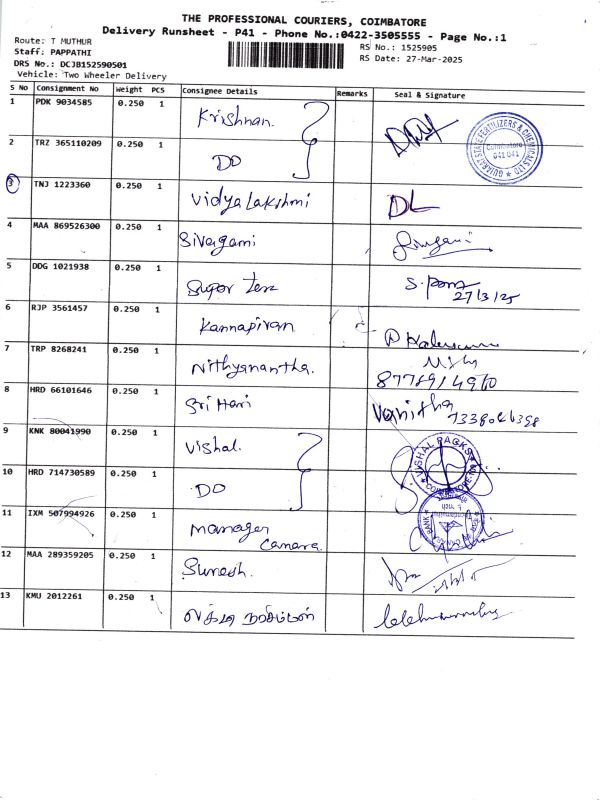 THE PROFESSIONAL COURIERS, COIMBATORE
Delivery Runsheet - P41 - Phone No.:0422-3505555 - Page No.:1
Route: T MUTHUR
RS No.: 1525905
Staff: PAPPATHI
RS Date: 27-Mar-2025
DRS No.: DCJB152590501
Vehicle: Two Wheeler Delivery
S No Consignment No Weight PCS Consignee Details Remarks Seal & Signature
1 PDK 9034585 0.250 1 Krishnan.
GUJARAT STATE FERTILIZERS & CHEMICALS LTD Coimbatore 641 041
2 TRZ 365110209 0.250 1 DO
3 TNJ 1223360 0.250 1 Vidyalakshmi DL
4 MAA 869526300 0.250 1 Sivagami
5 DDG 1021938 0.250 1 Super Tex S. Pons
27/3/25
6 RJP 3561457 0.250 1 Kannapiran
7 TRP 8268241 0.250 1 Nithyanantha.
8 HRD 66101646 0.250 1 Sri Hari Vanitha
9 KNK 80041990 0.250 1 Vishal. VISHAL PACKS COIMBATORE
10 HRD 714730589 0.250 1 DO
11 IXM 507994926 0.250 1 Manager
Canara
12 MAA 289359205 0.250 1 Suresh.
13 KMU 2012261 0.250 1